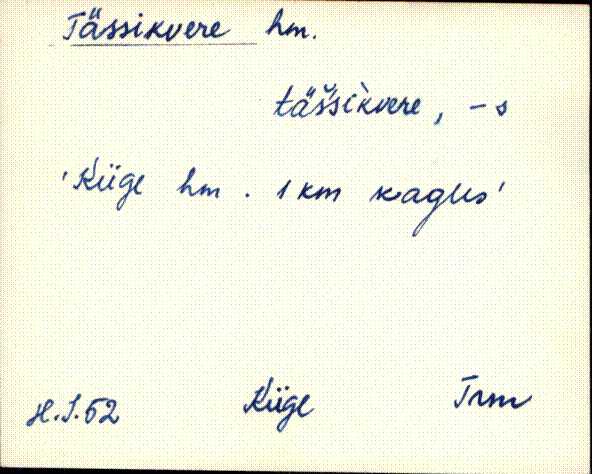 Tässikvere hm.
täš̀sìkvere, -s
'Küge hm. 1 km kagus'
H.J.52 Küge Trm